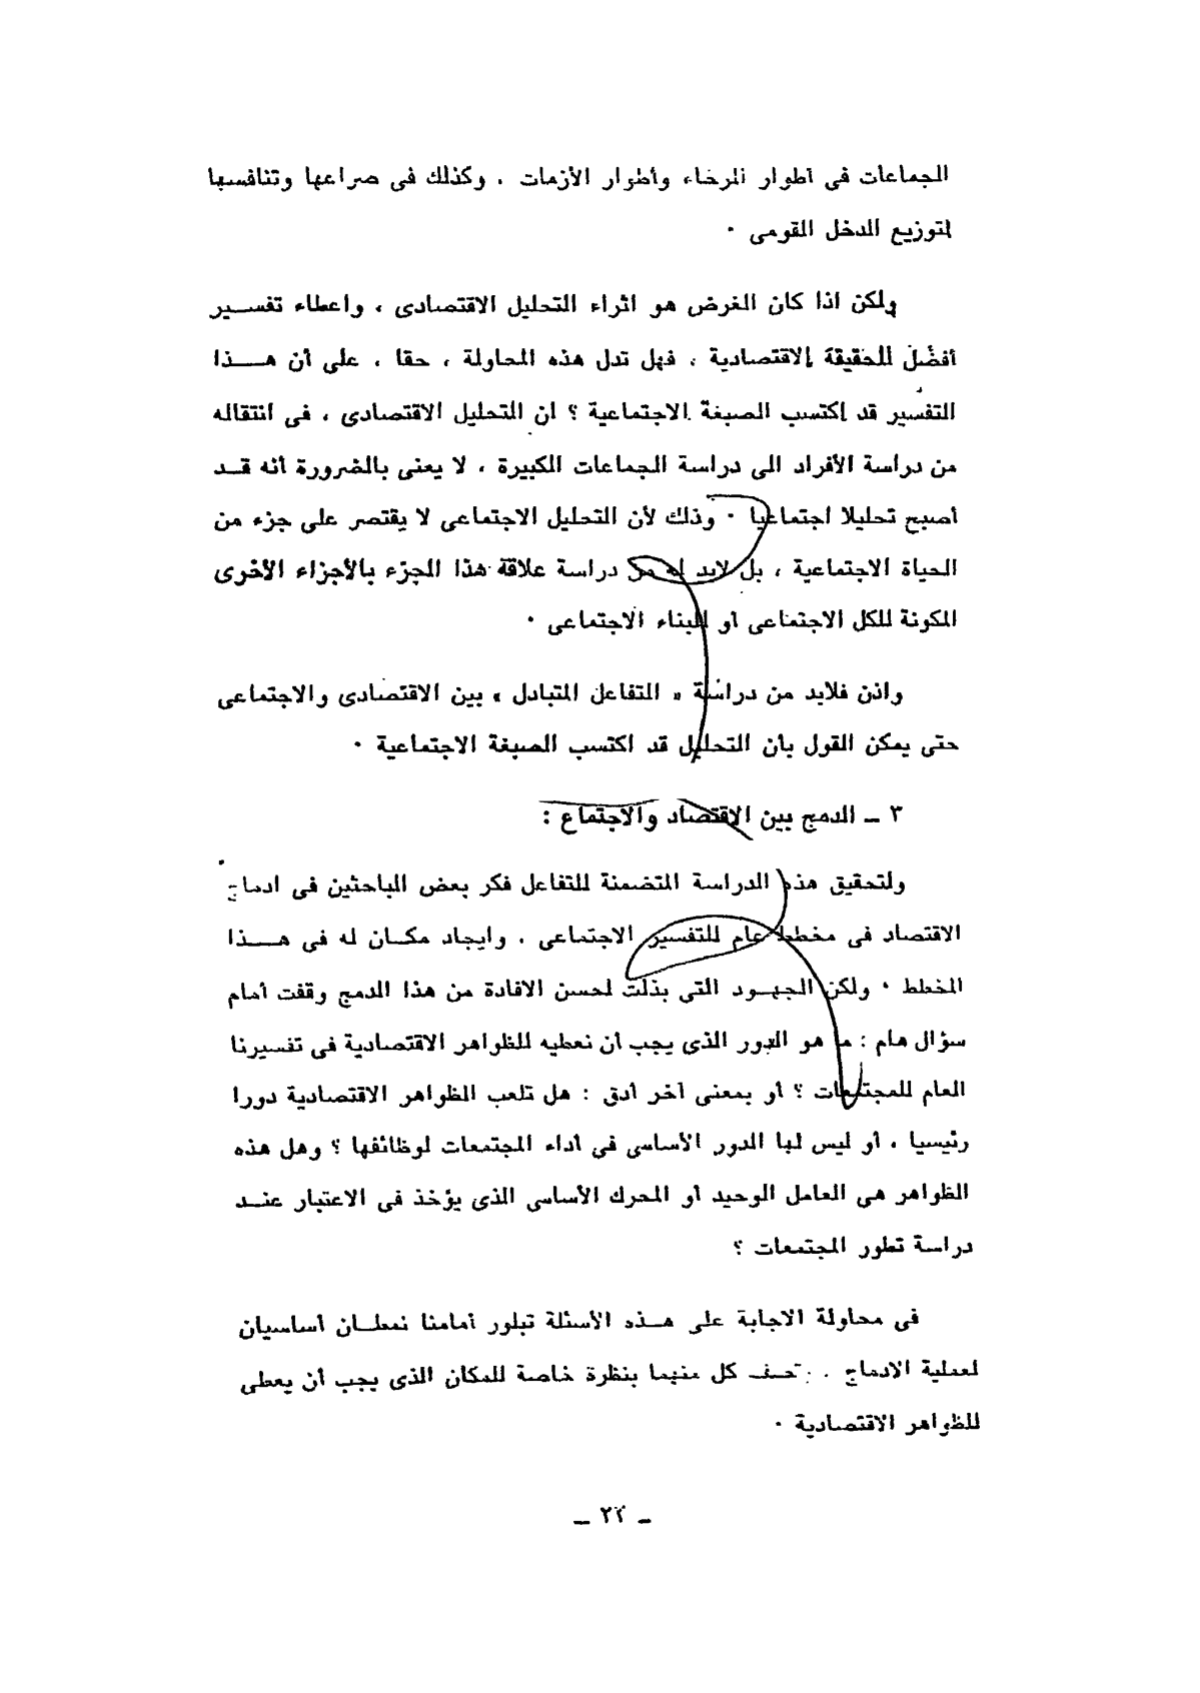 الجماعات فى أطوار الرخاء وأطوار الأزمات ، وكذلك فى صراعها وتنافسها
لتوزيع الدخل القومى ٠
ولكن اذا كان الغرض هو اثراء التحليل الاقتصادى ، واعطاء تفســير
أفضل للحقيقة الاقتصادية ، فهل تدل هذه المحاولة ، حقا ، على أن هــذا
التفسير قد اكتسب الصبغة الاجتماعية ؟ ان التحليل الاقتصادى ، فى انتقاله
من دراسة الأفراد الى دراسة الجماعات الكبيرة ، لا يعنى بالضرورة أنه قــد
أصبح تحليلا اجتماعيا ٠ وذلك لأن التحليل الاجتماعى لا يقتصر على جزء من
الحياة الاجتماعية ، بل لابد له من دراسة علاقة هذا الجزء بالأجزاء الأخرى
المكونة للكل الاجتماعى أو للبناء الاجتماعى ٠
واذن فلابد من دراسة « التفاعل المتبادل » بين الاقتصادى والاجتماعى
حتى يمكن القول بأن التحليل قد اكتسب الصبغة الاجتماعية ٠
٣ ــ الدمج بين الاقتصاد والاجتماع :
ولتحقيق هذه الدراسة المتضمنة للتفاعل فكر بعض الباحثين فى ادماج
الاقتصاد فى مخطط عام للتفسير الاجتماعى ، وايجاد مكــان له فى هــذا
المخطط ٠ ولكن الجهــود التى بذلت لحسن الافادة من هذا الدمج وقفت أمام
سؤال هام : ما هو الدور الذى يجب أن نعطيه للظواهر الاقتصادية فى تفسيرنا
العام للمجتمعات ؟ أو بمعنى آخر أدق : هل تلعب الظواهر الاقتصادية دورا
رئيسيا ، أو ليس لها الدور الأساسى فى أداء المجتمعات لوظائفها ؟ وهل هذه
الظواهر هى العامل الوحيد أو المحرك الأساسى الذى يؤخذ فى الاعتبار عنــد
دراسة تطور المجتمعات ؟
فى محاولة الاجابة على هــذه الأسئلة تبلور أمامنا نمطــان أساسيان
لعملية الادماج ، كل منهما بنظرة خاصة للمكان الذى يجب أن يعطى
للظواهر الاقتصادية ٠